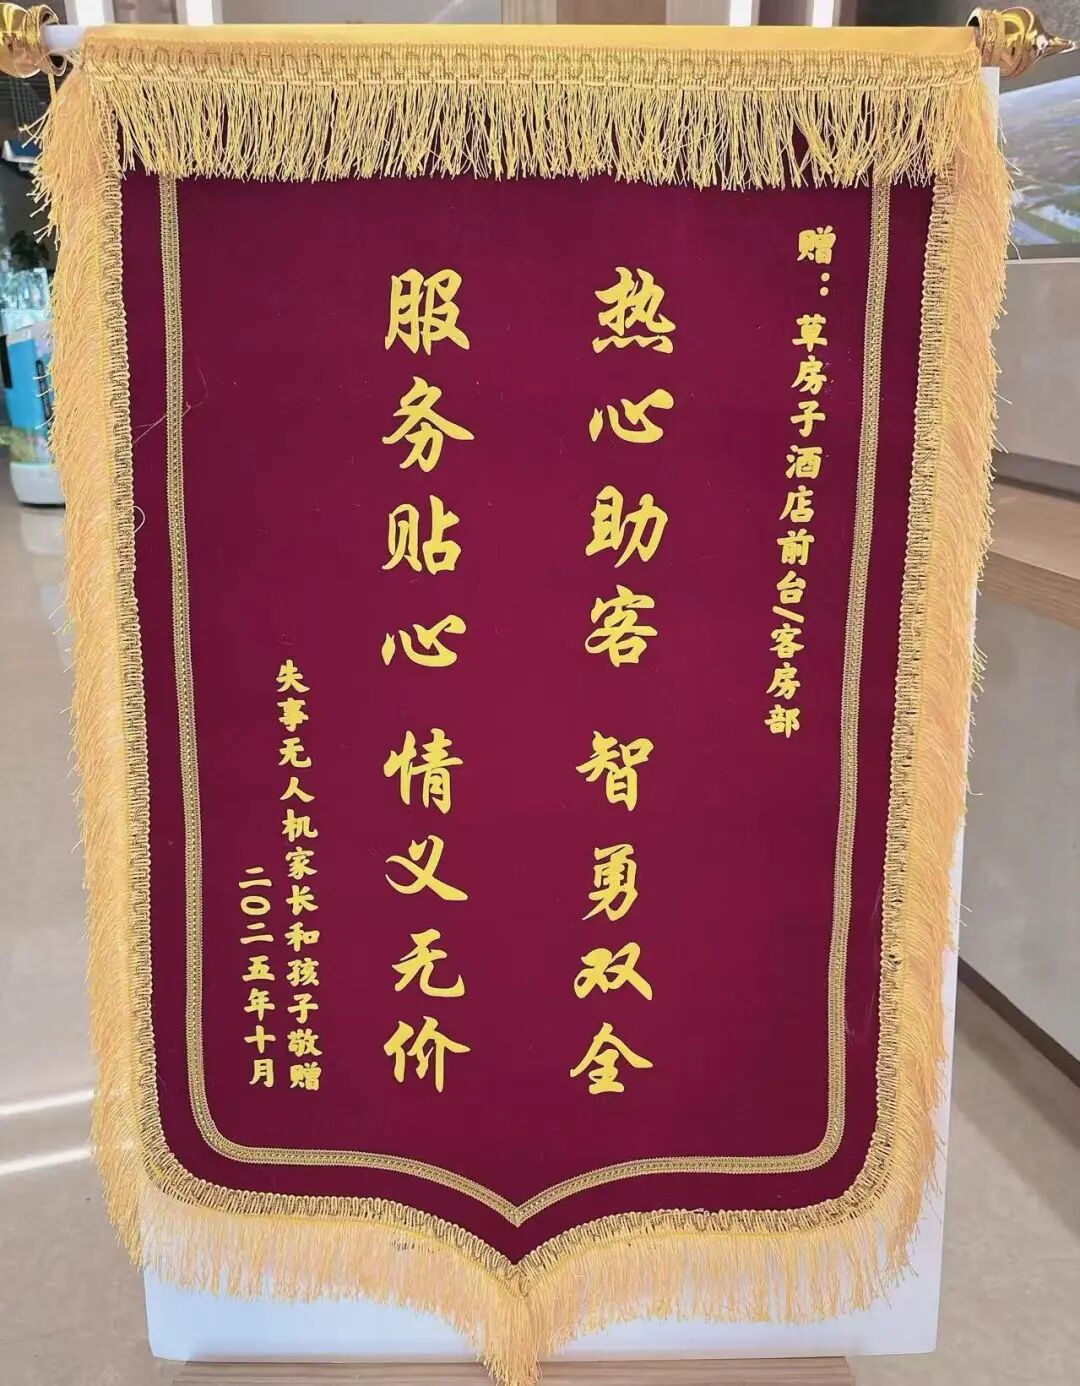 赠：草房子酒店前台/客房部
热心助客 智勇双全
服务贴心 情义无价
失事无人机家长和孩子敬赠
二〇二五年十月